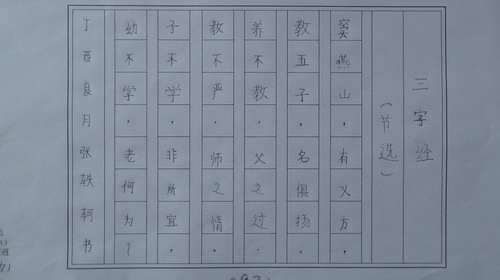 三字经
（节选）
窦燕山，有义方，
教五子，名俱扬。
养不教，父之过。
教不严，师之情。
子不学，非所宜。
幼不学，老何为？
丁酉良月张轶轲书